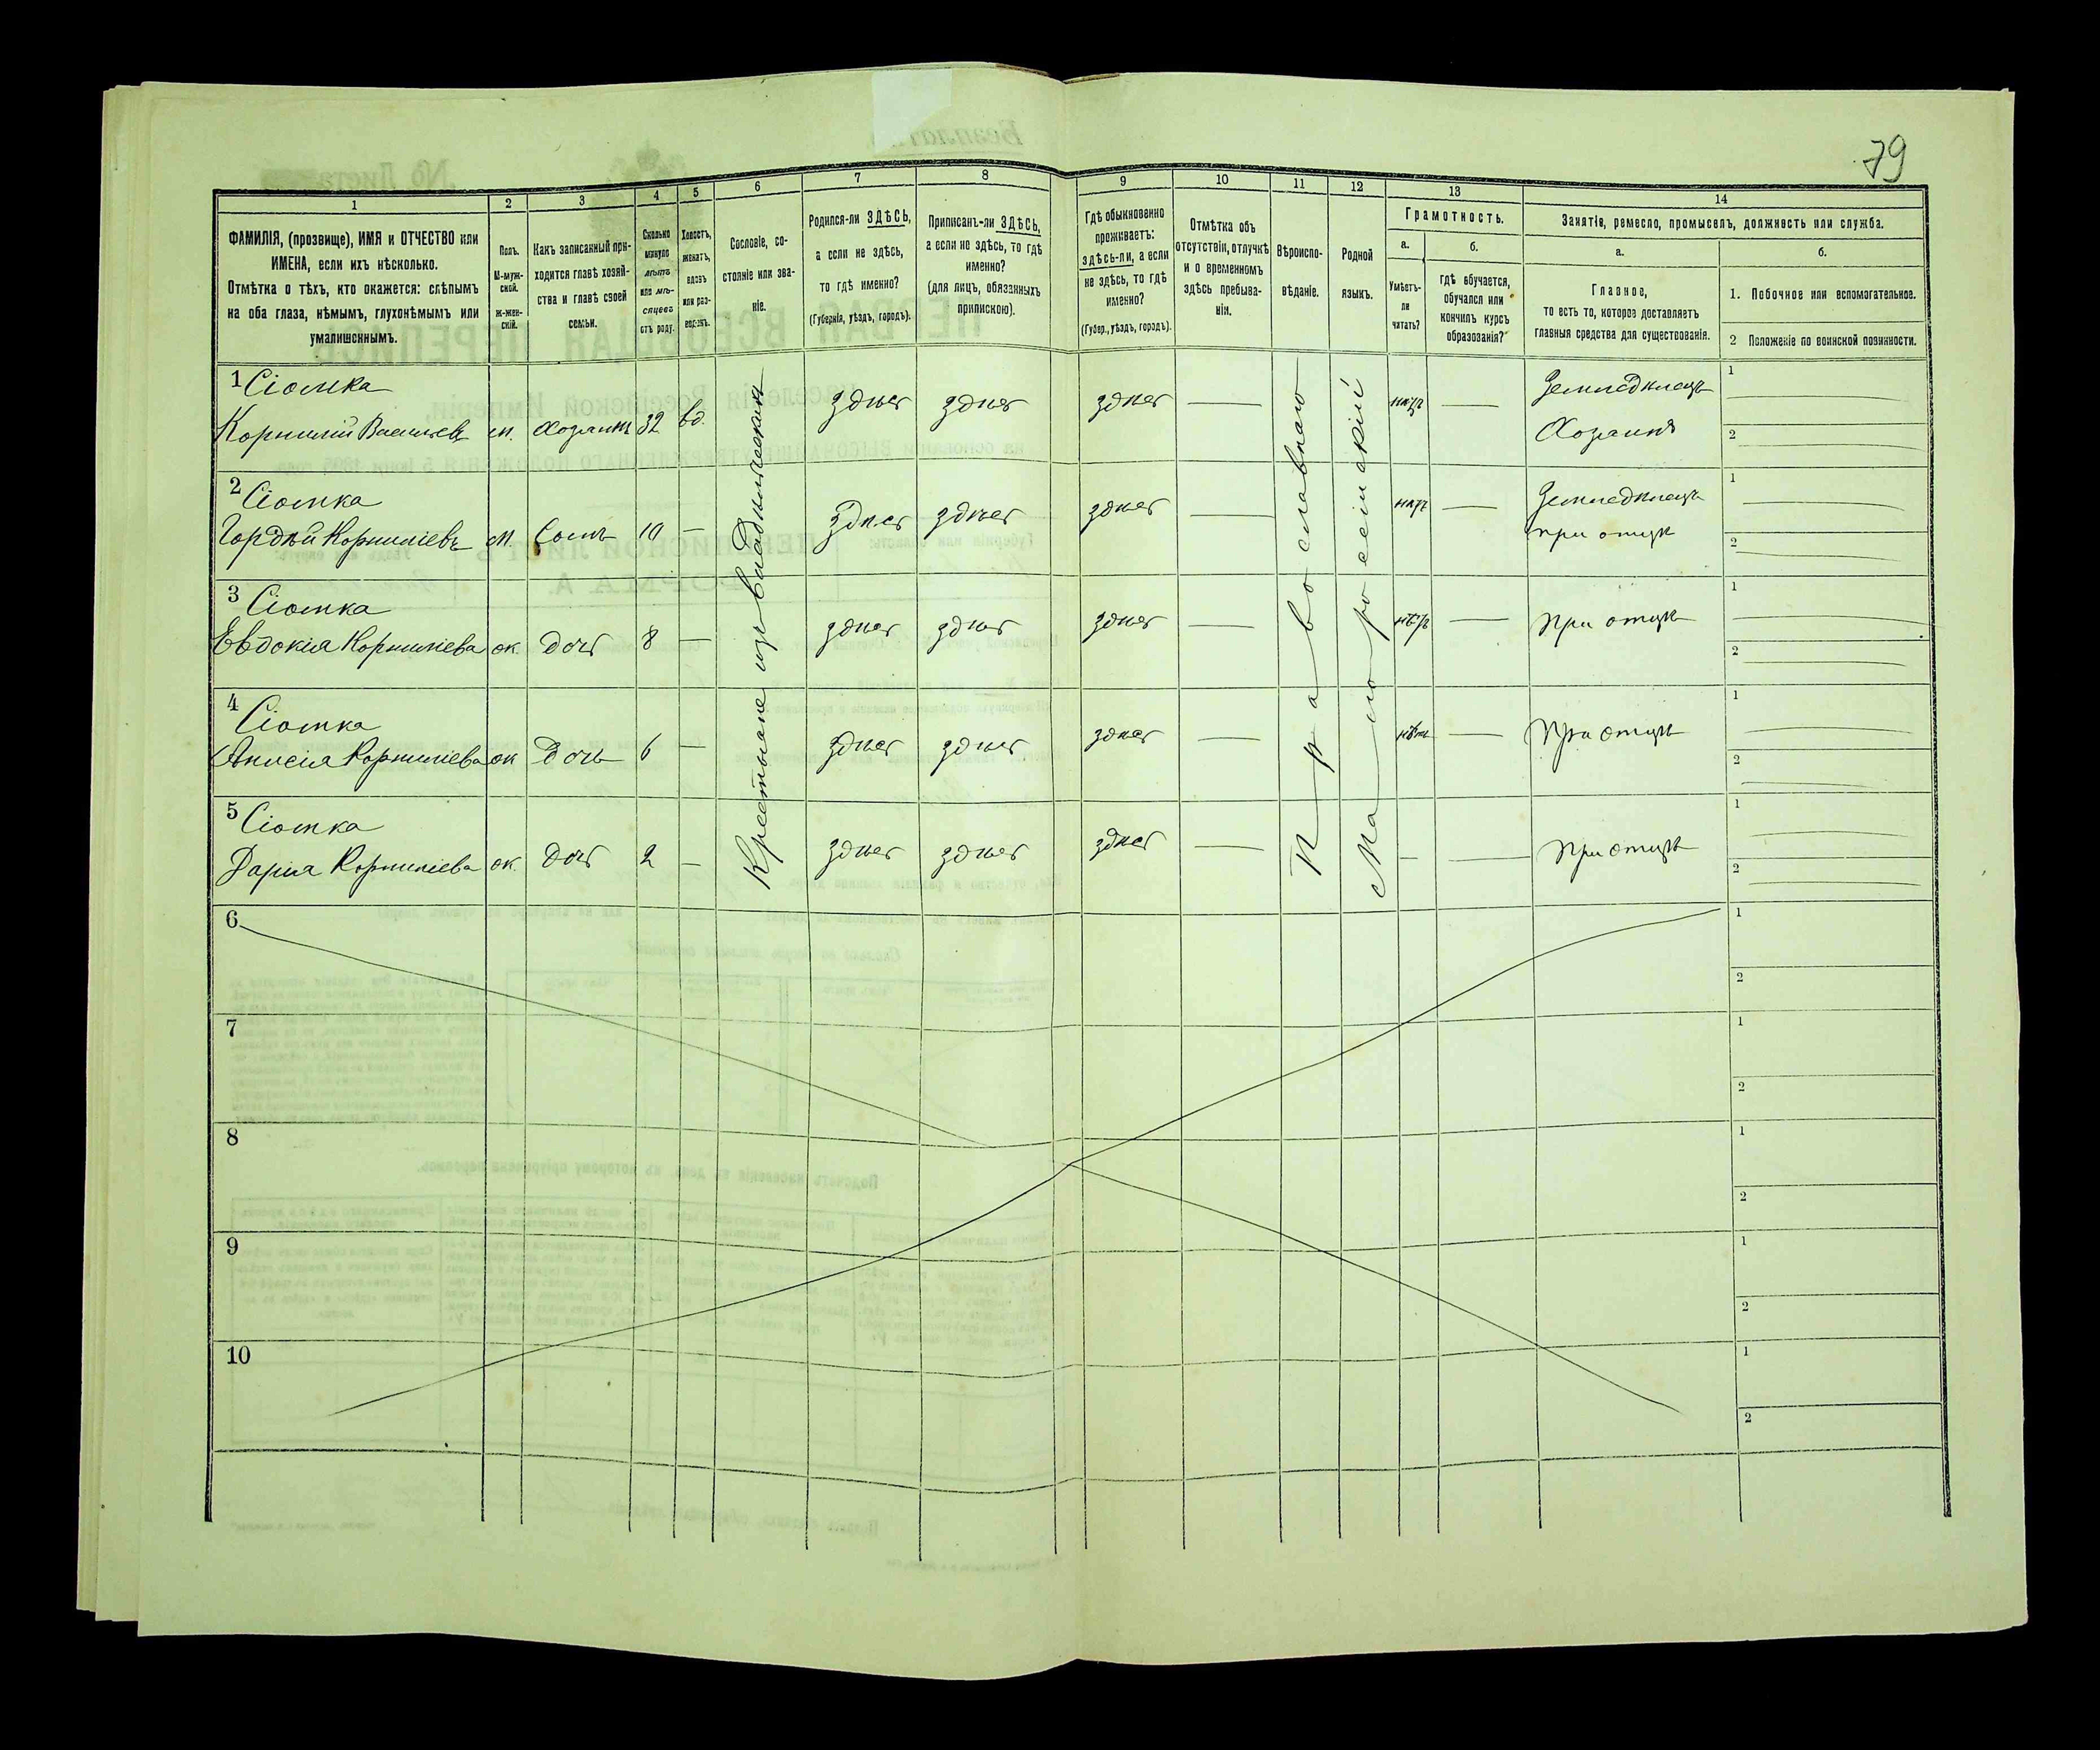 79
1 2 3 4 5 6 7 8 9 10 11 12 13 14
ФАМИЛІЯ, (прозвище), ИМЯ и ОТЧЕСТВО или
ИМЕНА, если ихъ нѣсколько.
Отмѣтка о тѣхъ, кто окажется: слѣпымъ
на оба глаза, нѣмымъ, глухонѣмымъ или
умалишеннымъ.
Полъ.
М-муж-
ской.
ж-жен-
скій.
Какъ записанный при-
ходится главѣ хозяй-
ства и главѣ своей
семьи.
Сколько
минуло
лѣтъ
или мѣ-
сяцевъ
отъ роду.
Холостъ,
женатъ,
вдовъ
или раз-
вед-нъ.
Сословіе, со-
стояніе или зва-
ніе.
Родился-ли ЗДѢСЬ,
а если не здѣсь,
то гдѣ именно?
(Губернія, уѣздъ, городъ).
Приписанъ-ли ЗДѢСЬ,
а если не здѣсь, то гдѣ
именно?
(для лицъ, обязанныхъ
припискою).
Гдѣ обыкновенно
проживаетъ:
здѣсь-ли, а если
не здѣсь, то гдѣ
именно?
(Губер., уѣздъ, городъ).
Отмѣтка объ
отсутствіи, отлучкѣ
и о временномъ
здѣсь пребыва-
ніи.
Вѣроиспо-
вѣданіе.
Родной
языкъ.
Грамотность.
а.
Умѣетъ-
ли
читать?
б.
гдѣ обучается,
обучался или
кончилъ курсъ
образованія?
Занятіе, ремесло, промыселъ, должность или служба.
а.
Главное,
то есть то, которое доставляетъ
главныя средства для существованія.
б.
1. Побочное или вспомогательное.
2 Положеніе по воинской повинности.
1 Сіомка
Корнилій Васильевъ м. Хозяинъ 32 вд. здѣсь здѣсь здѣсь — нѣтъ — Земледѣлецъ
Хозяинъ
1
2
2 Сіомка
Гордѣй Корниліевъ м. Сынъ 10 — здѣсь здѣсь здѣсь — нѣтъ — Земледѣлецъ
при отцѣ
1
2
3 Сіомка
Евдокія Корниліева ж. дочь 8 — здѣсь здѣсь здѣсь — нѣтъ — При отцѣ
1
2
4 Сіомка
Анисія Корниліева ж. Дочь 6 — здѣсь здѣсь здѣсь — нѣтъ — При отцѣ
1
2
5 Сіомка
Дарія Корниліева ж. Дочь 2 — здѣсь здѣсь здѣсь — — — При отцѣ
1
2
Крестьяне изъ владѣльческихъ
Православнаго
Малороссійскій
6
1
2
7
1
2
8
1
2
9
1
2
10
1
2